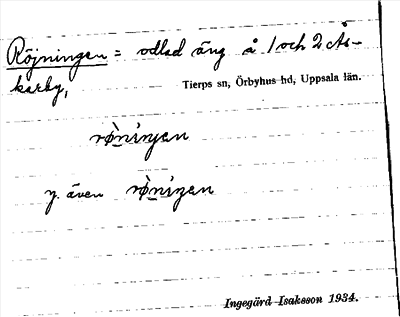 Röjningen = odlad äng å 1 och 2 Ås-
karby,
Tierps sn, Örbyhus hd, Uppsala län.
rø̀niŋen
y. även rø̀niŋen
Ingegärd Isakson 1934.